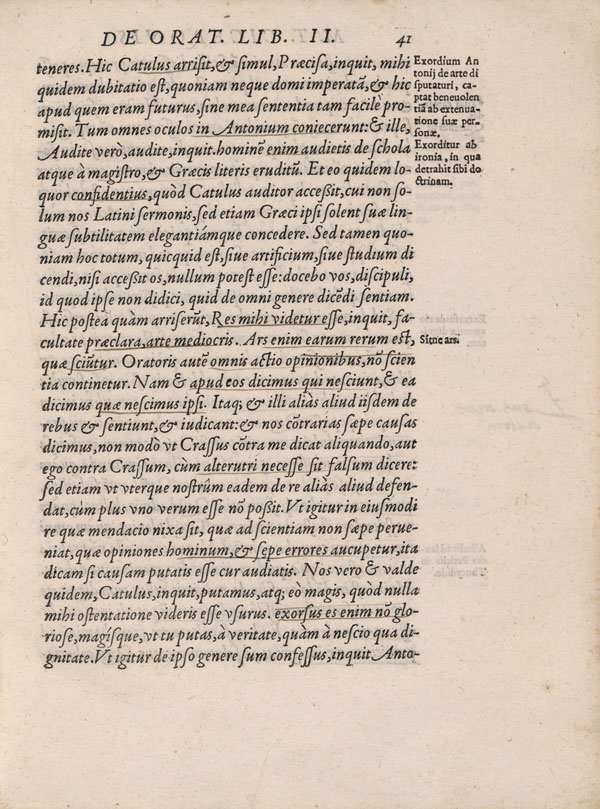 DE ORAT. LIB. II. 41
teneres. Hic Catulus arrisit, & simul, Præcisa, inquit, mihi
quidem dubitatio est, quoniam neque domi imperatā, & hic
apud quem eram futurus, sine mea sententia tam facilè pro-
misit. Tum omnes oculos in Antonium coniecerunt: & ille,
Audite verò, audite, inquit. hominē enim audietis de schola
atque à magistro, & Græcis literis eruditū. Et eo quidem lo-
quor confidentius, quòd Catulus auditor acceßit, cui non so-
lum nos Latini sermonis, sed etiam Græci ipsi solent suæ lin-
guæ subtilitatem elegantiámque concedere. Sed tamen quo-
niam hoc totum, quicquid est, siue artificium, siue studium di
cendi, nisi acceßit os, nullum potest esse: docebo vos, discipuli,
id quod ipse non didici, quid de omni genere dicēdi sentiam.
Hic postea quàm arriserūt, Res mihi videtur esse, inquit, fa-
cultate præclara, arte mediocris. Ars enim earum rerum est,
quæ sciūtur. Oratoris autē omnis actio opinionibus, nō scien
tia continetur. Nam & apud eos dicimus qui nesciunt, & ea
dicimus quæ nescimus ipsi. Itaq; & illi aliàs aliud iisdem de
rebus & sentiunt, & iudicant: & nos cōtrarias sæpe causas
dicimus, non modò vt Crassus cōtra me dicat aliquando, aut
ego contra Crassum, cùm alterutri necesse sit falsum dicere:
sed etiam vt vterque nostrûm eadem de re aliàs aliud defen-
dat, cùm plus vno verum esse nō poßit. Vt igitur in eiusmodi
re quæ mendacio nixa sit, quæ ad scientiam non sæpe perue-
niat, quæ opiniones hominum, & sepe errores aucupetur, ita
dicam si causam putatis esse cur audiatis. Nos vero & valde
quidem, Catulus, inquit, putamus, atq; eò magis, quòd nulla
mihi ostentatione videris esse vsurus. exorsus es enim nō glo-
riose, magísque, vt tu putas, à veritate, quàm à nescio qua di-
gnitate. Vt igitur de ipso genere sum confessus, inquit Anto-
Exordium An
tonij de arte di
sputaturi, ca-
ptat beneuolen
tiā ab extenua-
tione suæ per-
sonæ.
Exorditur ab
ironia, in qua
detrahit sibi do
ctrinam.
Sitne ars.